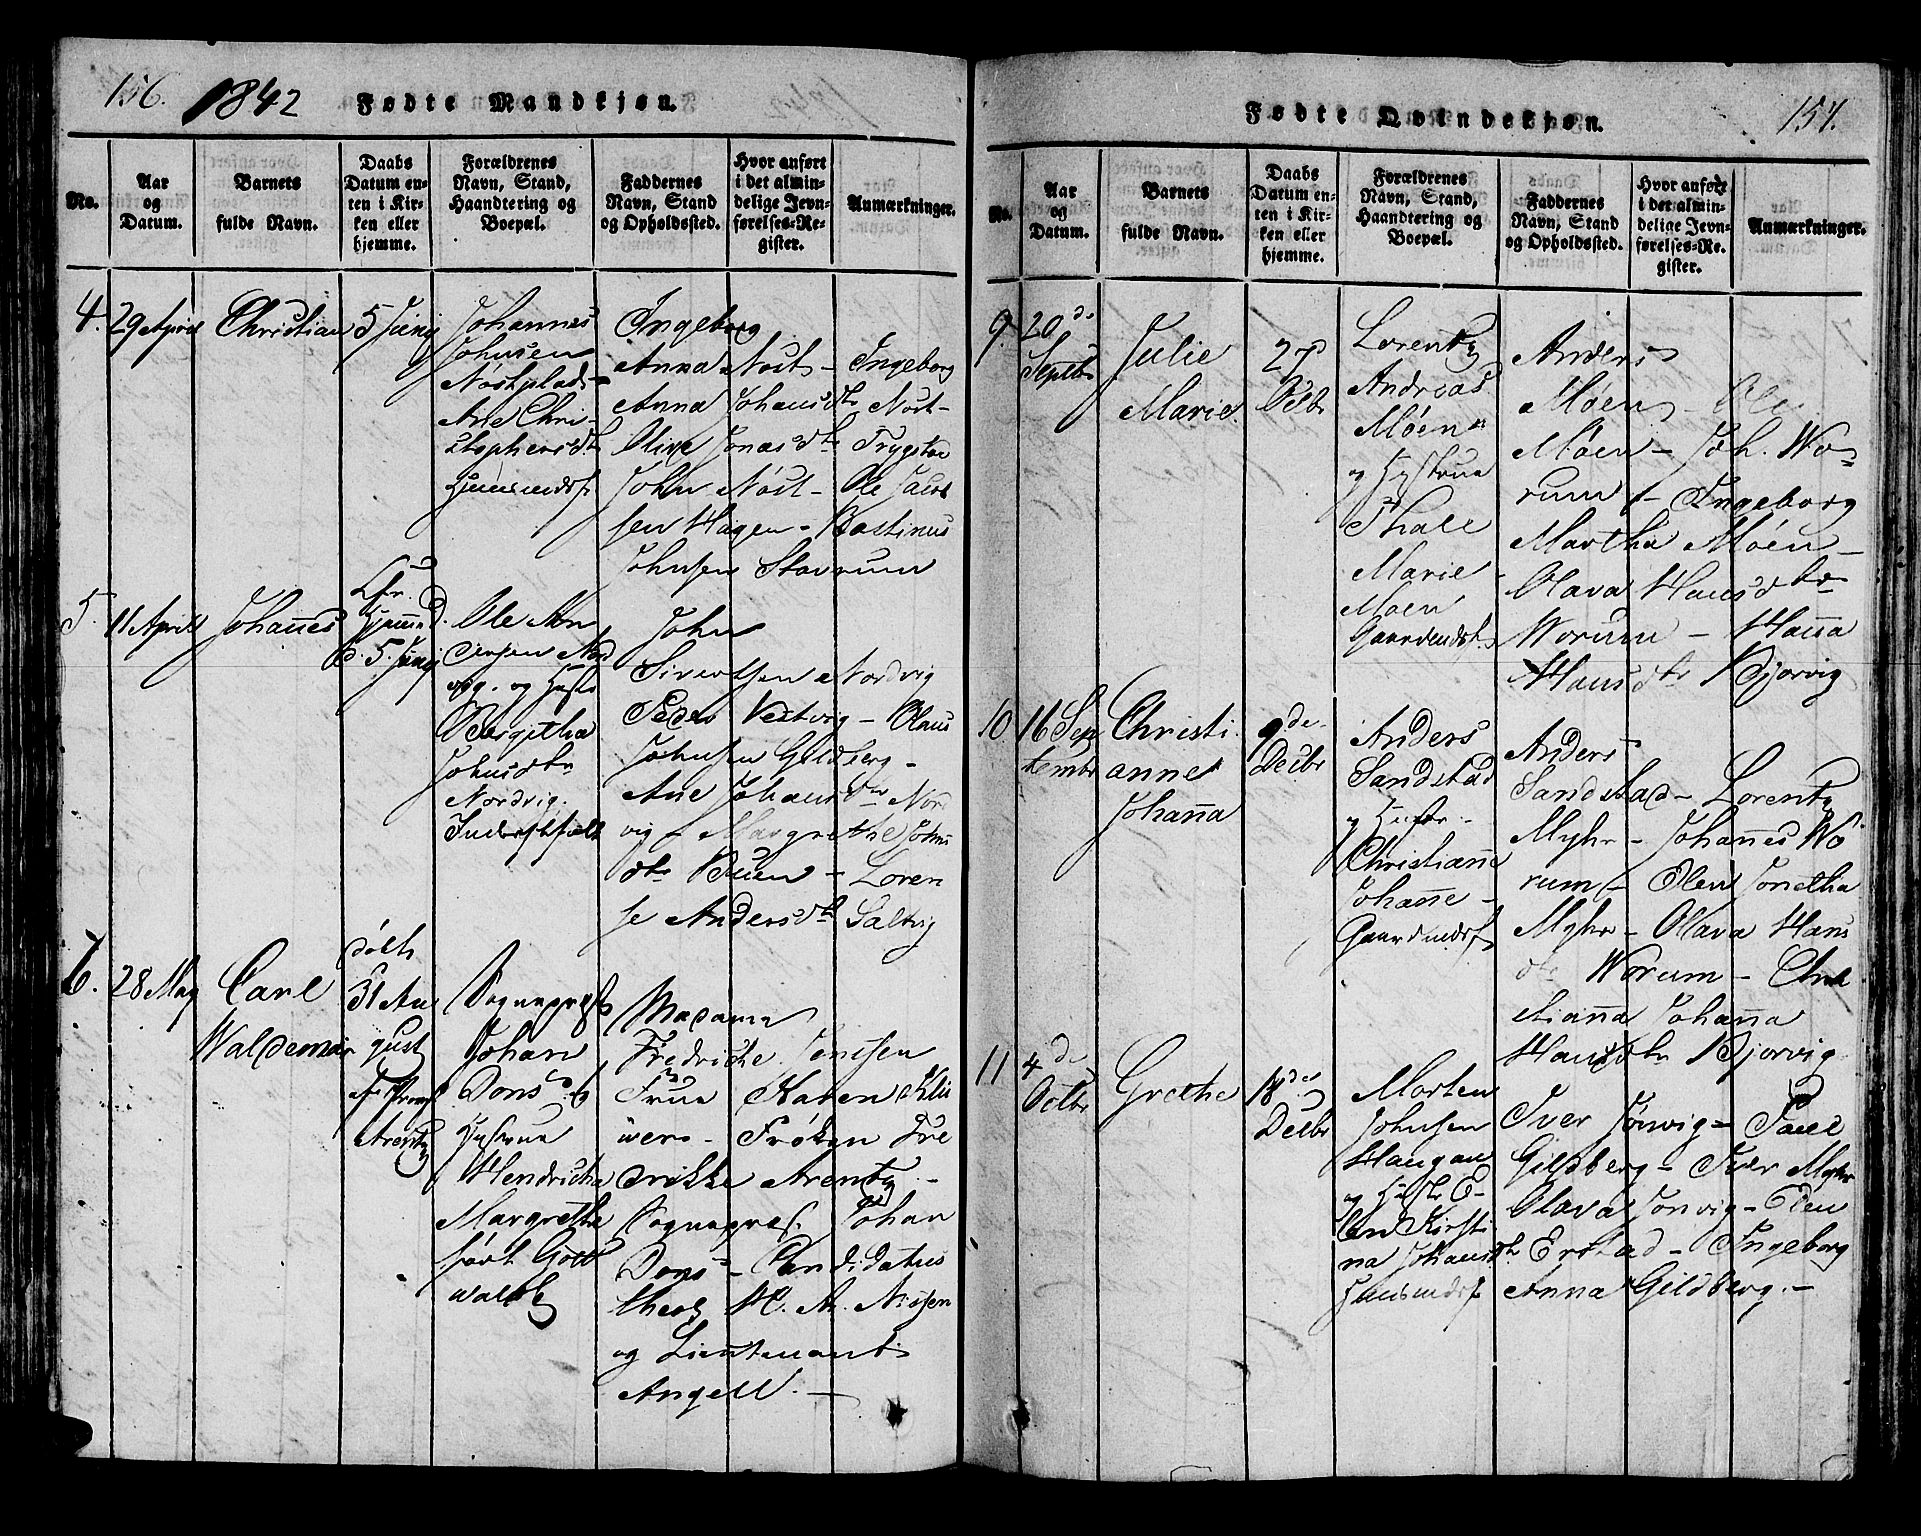 156.
1842
Fødte Mandkjøn.
No.
Aar
og
Datum.
Barnets
fulde Navn.
Daabs
Datum en-
ten i Kir-
ken eller
hjemme.
Forældrenes
Navn, Stand,
Haandtering og
Boepæl.
Faddernes
Navn, Stand
og Opholdssted.
Hvor anført
i det almin-
delige Jevn-
førelses-Re-
gister.
Anmærkninger.
4.
29 April
Christian
5 Junij
Johannes
Johnsen
Nostplads
Ane Chri-
stophersdtr
Huusmdsf
Ingeborg
Anna Nost - Ingeborg
Anna Johansdtr Nost -
Olive Jonasdtr Trygstad
John Nost - Ole Jacob
sen Hagen - Bastinus
Johnsen Stavrum
5.
11 April
Johañes
5. Junij
Ole An
dersen Nord
vig. og Hustr
Bergitha
Johnsdtr
Nordvig.
John
Sivertsen Nordvig
Peder Vestvig - Olaus
Johnsen Gildberg -
Ane Johansdtr Nor
vig - Margrethe Johns
dtr Buen - Loren
se Andersdtr Salvig
6.
28 May
Carl
Waldemar
døbt
31 Au
gust
af Provst
Arentz
Sognepræst
Johan
Dons og
Hustrue
Hendricha
Margretha
født Gott
waldtz
Madame
Fredriche Jenssen
Frue Karen Klü
wers - Frøken Fre
drikke Arentz -
Sognepræst Johan
Dons - Candidatus
theol H. A. Nissen
og Lieutenant
Angell. -
157.
Fødte Qvindekjøn.
No.
Aar
og
Datum.
Barnets
fulde Navn.
Daabs
Datum en-
ten i Kir-
ken eller
hjemme.
Forældrenes
Navn, Stand,
Haandtering og
Boepæl.
Faddernes
Navn, Stand
og Opholdssted.
Hvor anført
i det almin-
delige Jevn-
førelses-Re-
gister.
Anmærkninger.
9.
20de
Septbr
Julie
Marie.
27
Octbr
Lorentz
Andreas
Møen
og Hustrue
Thale
Marie
Møen
Gaardmdsf.
Anders
Møen - Ole
Møen - Joh. Wo-
rum - Ingeborg
Martha Møen -
Olava Hansdtr
Worum - Haña
Hansdtr Bjørvig
10
16 Sep
tembr
Christi-
anne
Johaña
9de
Decbr
Anders
Sandstad
og Hustr -
Christiañe
Johañe -
Gaardmdsf
Anders
Sandstad - Lorentz
Myhr - Johañes Wo
rum - Olen Jonetha
Myhr - Olava Hans
dtr Worum - Chri
stiaña Johaña
Hansdtr Bjørvig
11
4de
Octbr
Grethe
18de
Decbr
Morten
Johnsen
Haugan
og Hustr E-
len Kirsti
na Johansdtr
Huusmdsf
Iver Jørvig - Paul
Gildberg - Iver Myhr
Olava Jørvig - Elen
Erstad - Ingeborg
Anna Gildberg. -